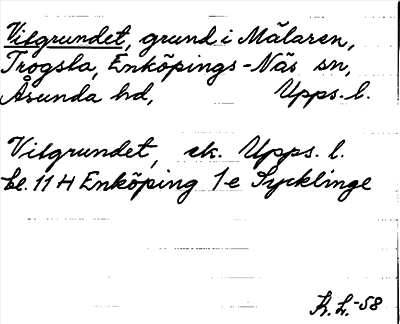 Vilgrundet, grund i Mälaren,
Trögsta, Enköpings-Näs sn,
Åsunda hd, Upps. l.
Vilgrundet, ek. Upps. l.
bl. 11 H Enköping 1 e Sycklinge
K. L. -58